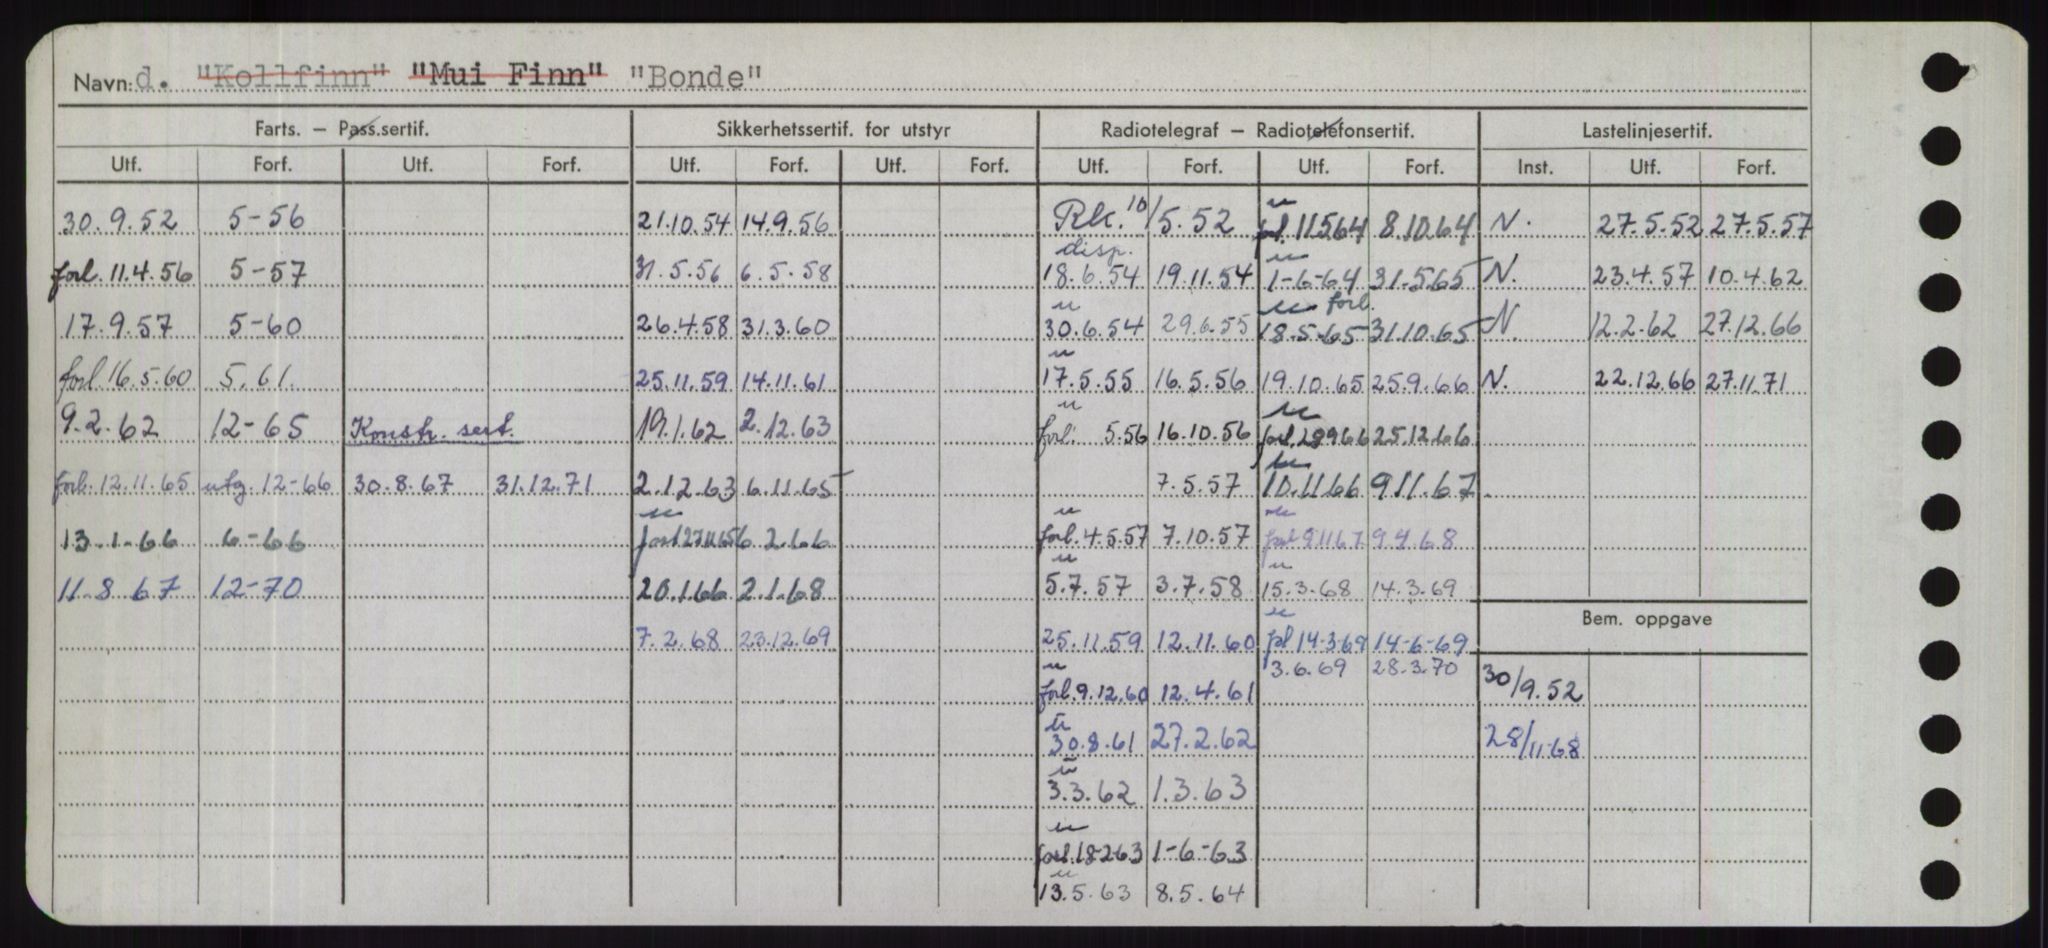 Navn: d. "Kollfinn" "Mui Finn" "Bonde"
Farts. – Pass.sertif. Sikkerhetssertif. for utstyr Radiotelegraf – Radiotelefonsertif. Lastelinjesertif.
Utf. Forf. Utf. Forf. Utf. Forf. Utf. Forf. Utf. Forf. Utf. Forf. Inst. Utf. Forf.
30.9.52 5-56 21.10.54 14.9.56 Rk. 10/5.52 u forl. 11.5.64 8.10.64 N. 27.5.52 27.5.57
disp. u
forl. 11.4.56 5-57 31.5.56 6.5.58 18.6.54 19.11.54 1-6-64 31.5.65 N. 23.4.57 10.4.62
u u forl.
17.9.57 5-60 26.4.58 31.3.60 30.6.54 29.6.55 18.5.65 31.10.65 N. 12.2.62 27.12.66
u
forl. 16.5.60 5.61. 25.11.59 14.11.61 17.5.55 16.5.56 19.10.65 25.9.66 N. 22.12.66 27.11.71
u u
9.2.62 12-65 Konstr. sert. 19.1.62 2.12.63 forl. 5.56 16.10.56 forl. 28966 25.12.66
u
forl. 12.11.65 utg. 12-66 30.8.67 31.12.71 2.12.63 6.11.65 7.5.57 10.11.66 9.11.67
u u u
13.1.66 6-66 forl 27.11.65 6.2.66 forl. 4.5.57 7.10.57 forl 9.11.67 9.4.68
u u
11.8.67 12-70 20.1.66 2.1.68 5.7.57 3.7.58 15.3.68 14.3.69
Bem. oppgave
u
7.2.68 23.12.69 25.11.59 12.11.60 forl 14-3-69 14-6-69
u 3.6.69 28.3.70
forl. 9.12.60 12.4.61 30/9.52
u
30.8.61 27.2.62 28/11-68
u
3.3.62 1.3.63
u
forl. 18263 1-6-63
u
13.5.63 8.5.64